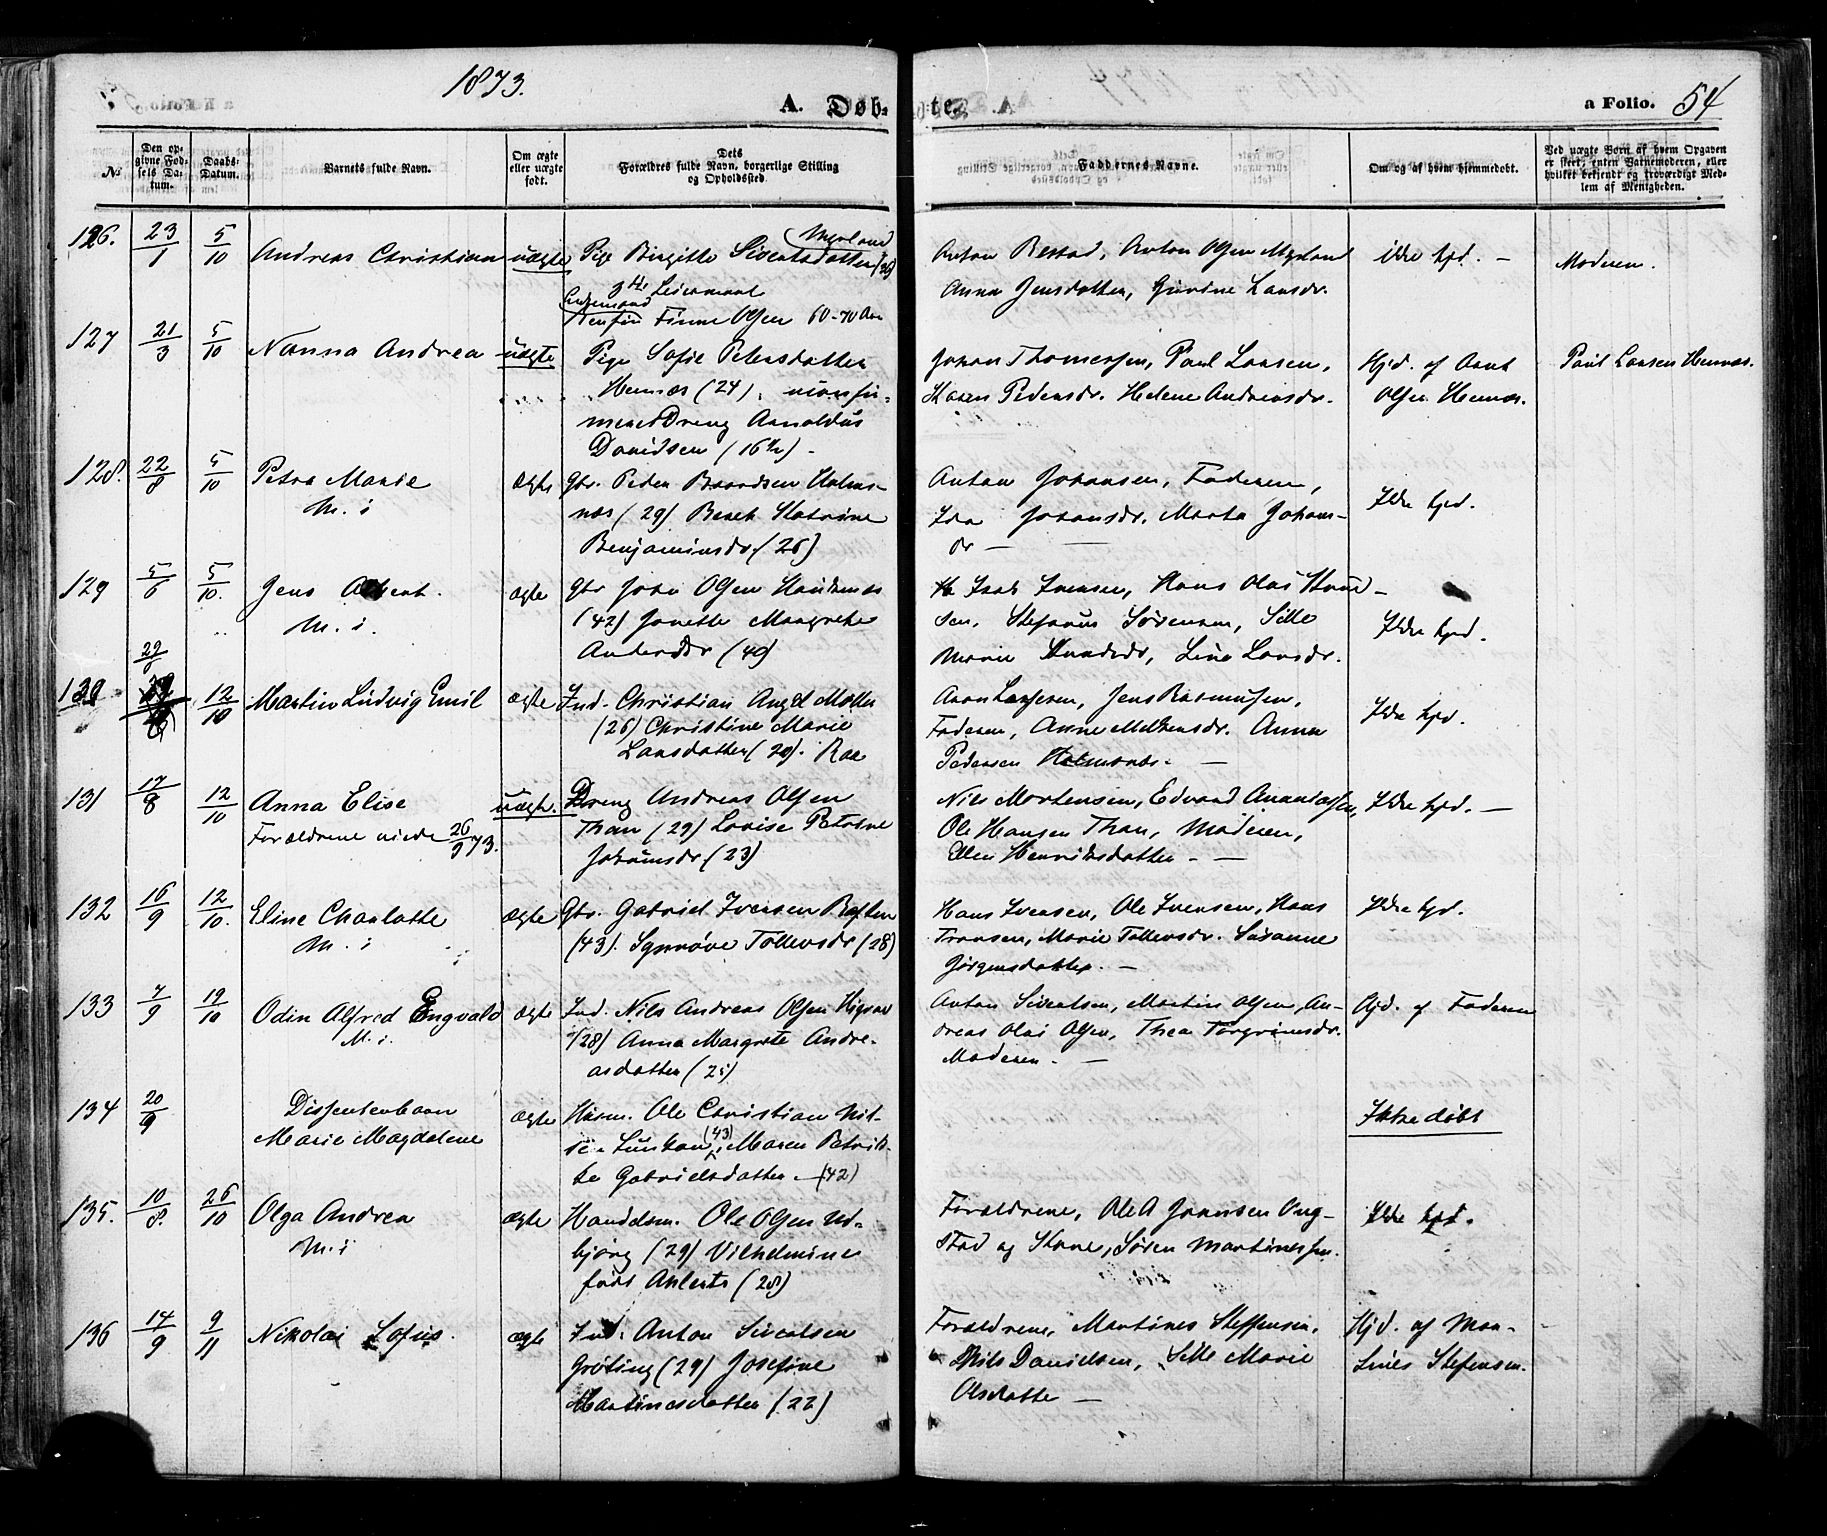 1873.
A. Døb-
te.
a Folio. 54
No
Den opgivne Fødsels Datum.
Daabs-Datum.
Barnets fulde Navn.
Om ægte eller uægte født.
Dets Forældres fulde Navn, borgerlige Stilling og Opholdssted.
Faddernes Navne.
Om og af hvem hjemmedøbt.
Ved uægte Børn af hvem Opgaven er skeet, enten Barnemoderen, eller hvilket bekjendt og troværdigt Medlem af Menigheden.
126. 23/1 5/10 Andreas Christian uægte Pige Birgitte Sivertsdatter
3die Leiermaal
Finne Olsen 60-70 Aar
Anton Olsen
Anna Jensdatter, Larsdr.
ikke hjd. —
Moderen.
127 21/3 5/10 Nanna Andrea uægte Pige Sofie Petersdatter
Hemnes (24)
Dreng Arnoldus
Davidsen (16½) -
Johan Thomessen, Paul Larsen,
Karen Pedersdr. Helene Andreasdr.
Hjd. af Arnt
Olsen Hemnes.
Paul Larsen Hemnes.
128. 22/8 5/10 Petra Marie ægte Gbr. Peder Baardsen Holms-
M. i næs (29) Bereth Katrine
Benjaminsdr (26)
Anton Johansen, Faderen,
Ida Johansdr. Marta Johans-
dr —
Ikke hjd.
129 5/6 5/10. Jens Albert. ægte Gbr Johan Olsen
M. i. (42) Janette Margrethe
Andersdr (40)
Isak Ivensen, Hans Olai
sen, Stefanus Sørensen, Sille
Marie Knudsdr, Lina Larsdr.
Ikke hjd.
130 12/10 Martin Ludvig Emil ægte Ind. Christian Angel Møller
(26) Christine Marie
Larsdatter (20). Raa
Jens Rasmussen,
Faderen, Anne Anna
Pedersen Holmsnæs. —
Ikke hjd.
131 17/8 12/10 Anna Elise uægte. Dreng Andreas Olsen
Forældrene viede 26/9 73. (29) Lovise Petrine
(23)
Nils Mortensen, Edvard Ananiassen,
Ole Hansen Moderen,
Ellen Henriksdatter - —
Ikke hjd. —
132 16/9 12/10. Eline Charlotte ægte Gbr. Gabriel Ivensen
M. i (43). Synnøve Tollevsdr (28)
Hans Ivensen, Ole Ivensen, Hans
Fransen, Marie Tollevsdr. Susanne
Jørgensdatter. —
Ikke hjd.
133 7/9 19/10 Odin Alfred Engvald ægte Ind. Nils Andreas Olsen
M. i. (28) Anna Margrete Andre-
asdatter (25)
Anton Sivertsen, Martin Olsen, An-
dreas Olai Olsen, Thea Torgrimsdr.
Moderen. —
Hjd. af Faderen
134 20/9 Dissenterbarn ægte Husm. Ole Christian Nil-
Marie Magdalene (43) Maren Petrik-
ke Gabrielsdatter. (42)
Ikke døbt
135. 10/8. 26/10 Olga Andrea ægte Handelsm. Ole Olsen Ud-
M. i bjørg (29) Vilhelmine
født Ahlerts (28)
Forældrene, Ole A Jonnsen Ung-
stad og Kone, Søren Martinussen.
Ikke hjd.
136 14/9 9/11 Nikolai Sofus. ægte Ind. Anton Sivertsen
Grøting (29) Josefine
Martinesdatter (22)
Forældrene, Martines Steffensen,
Nils Danielsen, Sille Marie
Olsdatte —
Hjd. af Mar-
tines Stefensen.